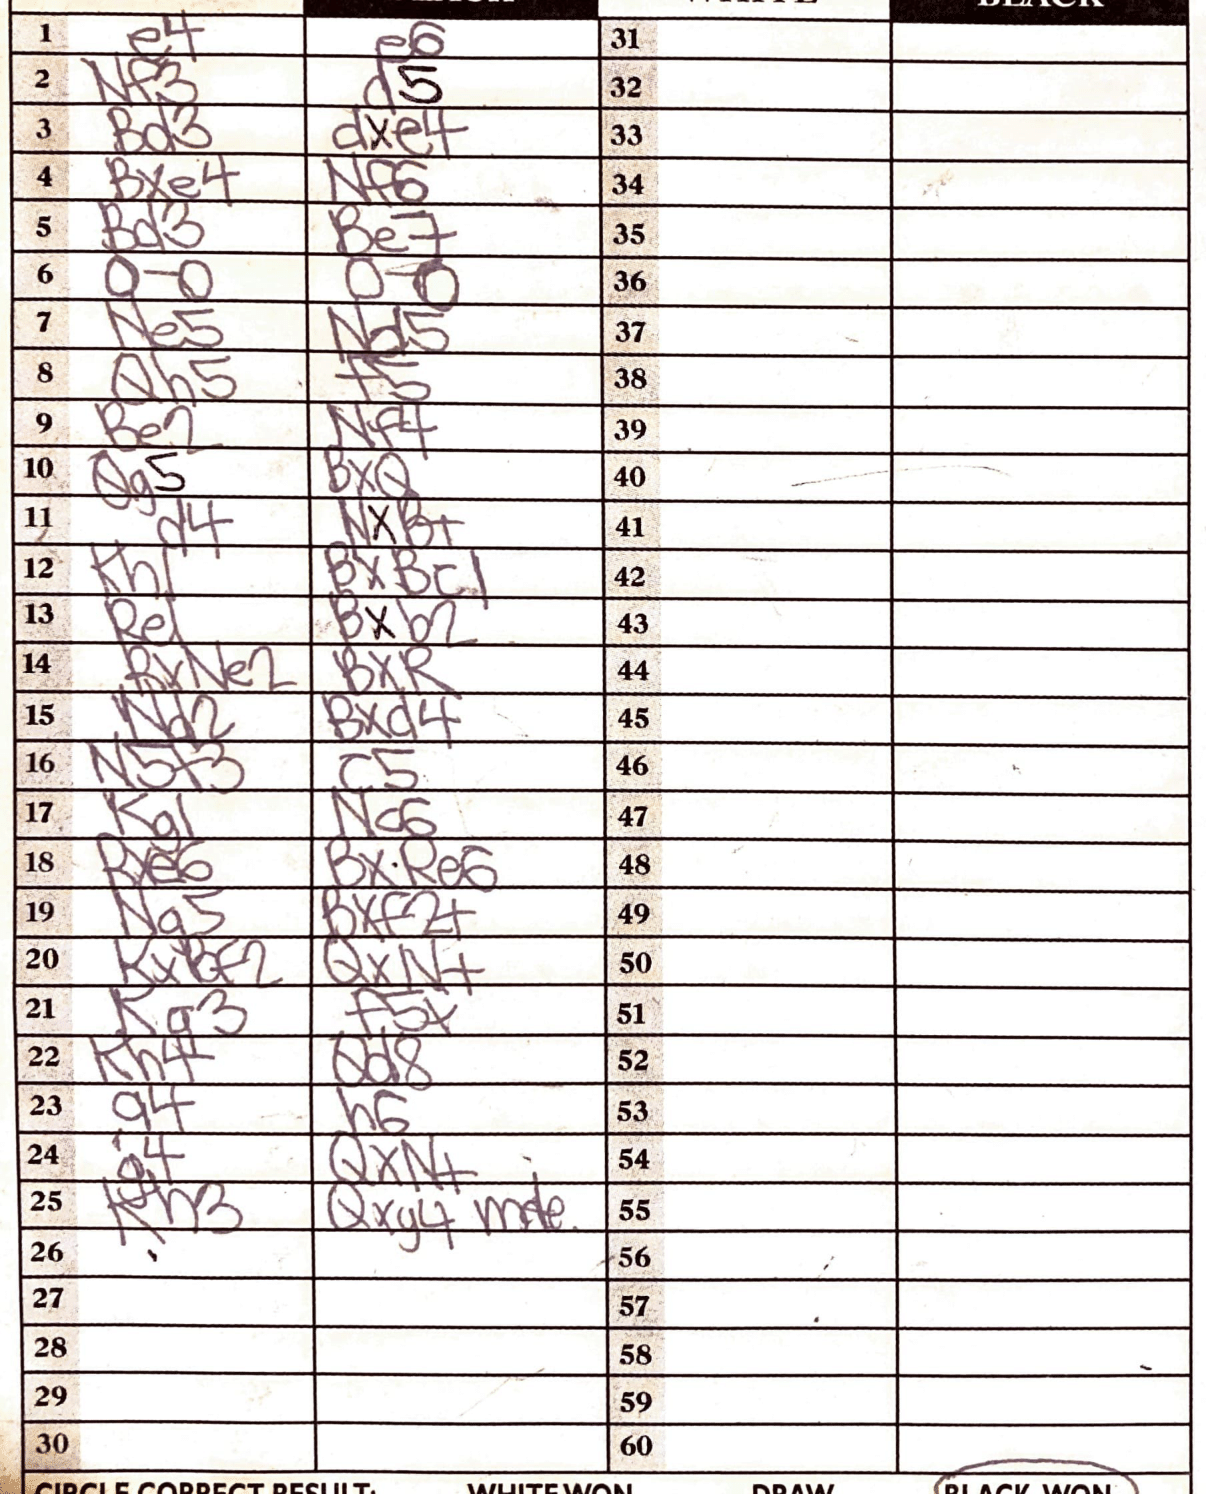 WHITE BLACK
1 e4 e6 31
2 Nf3 d5 32
3 Bd3 dxe4 33
4 Bxe4 Nf6 34
5 Bd3 Be7 35
6 O-O O-O 36
7 Ne5 Nd5 37
8 Qh5 f5 38
9 Be2 Nf4 39
10 Qg5 BxQ 40
11 d4 NxB+ 41
12 Kh1 BxBc1 42
13 Re1 Bxb2 43
14 RxNe2 BxR 44
15 Nd2 Bxd4 45
16 N5f3 c5 46
17 Kg1 Nc6 47
18 Rxe6 Bx·Re6 48
19 Ng5 Bxf2+ 49
20 KxBf2 QxN+ 50
21 Kg3 f5x 51
22 Kh4 Qd8 52
23 g4 h6 53
24 g4 QxN+ 54
25 Kh3 Qxg4 mate. 55
26 56
27 57
28 58
29 59
30 60
CIRCLE CORRECT RESULT: WHITE WON DRAW BLACK WON